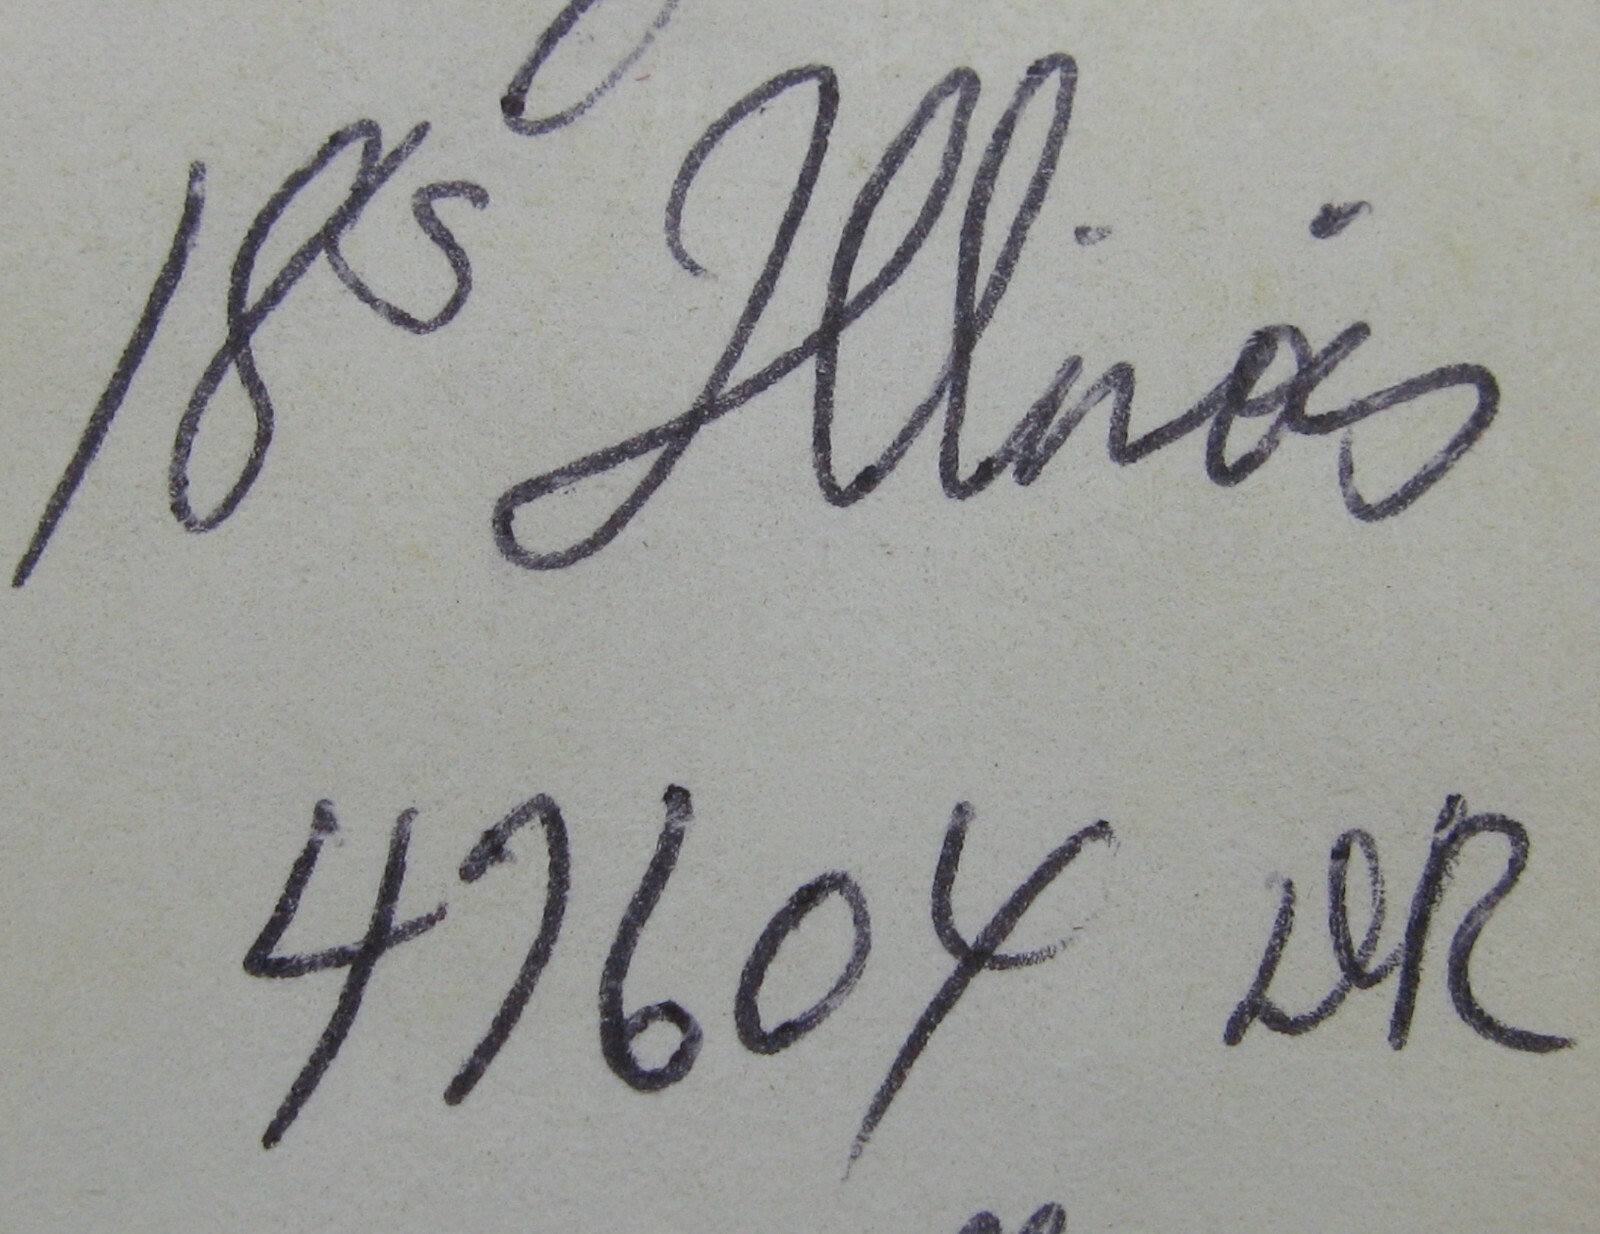 18s Illinois
47604 DR